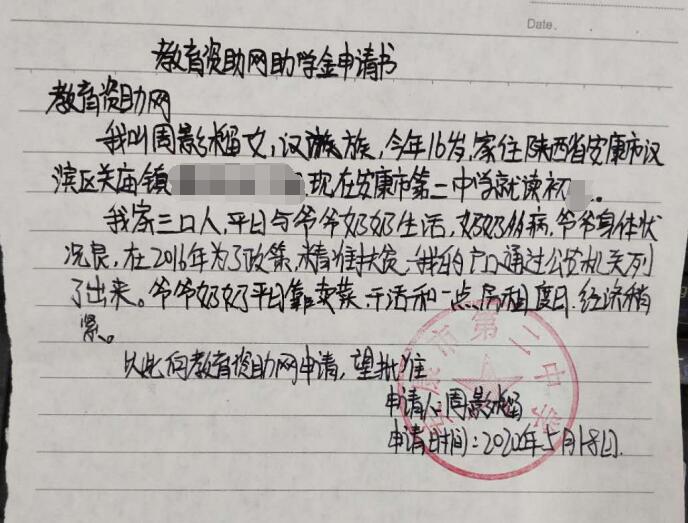 Date.
教育资助网助学金申请书
教育资助网
我叫周影 女,汉族,今年16岁,家住陕西省安康市汉
滨区关庙镇 现在安康市第二中学就读初
我家三口人,平日与爷爷奶奶生活,奶奶 病,爷爷身体状
况良,在2016年为了政策,精准扶贫,我的户口通过公安机关列
了出来。爷爷奶奶平日靠卖菜、干活和一点房租度日.经济稍
紧。
以此向教育资助网申请,望批准
申请人:周影
申请时间:2020年5月18日.
安康市第二中学